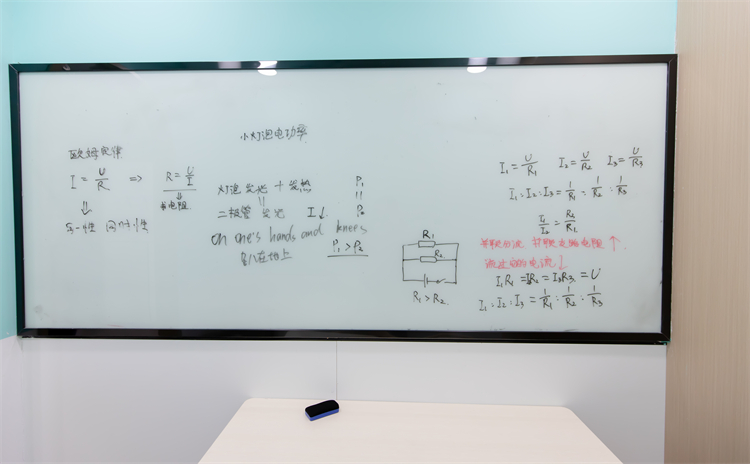 小灯泡电功率
欧姆定律
I = U/R => R = U/I
求电阻
同一性 同时性
灯泡 发光 + 发热 P₁
=
二极管 发光 I↓ P₂
On one's hands and knees
趴在地上
P₁ > P₂
R₁
R₂
R₁ > R₂
I₁ = U/R₁ I₂ = U/R₂ I₃ = U/R₃
I₁ : I₂ : I₃ = 1/R₁ : 1/R₂ : 1/R₃
I₁/I₂ = R₂/R₁
并联分流 并联支路电阻↑
流过它的电流↓
I₁R₁ = I₂R₂ = I₃R₃ = U
I₁ : I₂ : I₃ = 1/R₁ : 1/R₂ : 1/R₃